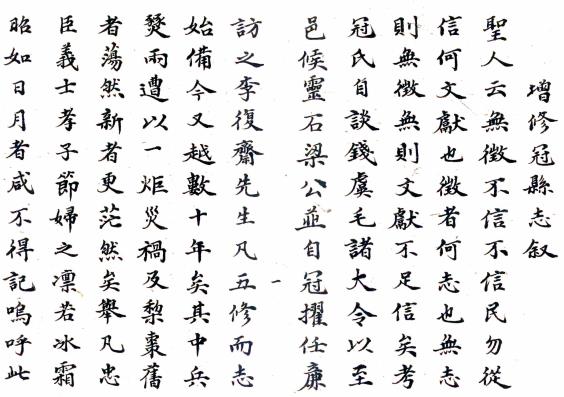 增修冠縣志叙
聖人云無徵不信不信民勿從
信何文獻也徵者何志也無志
則無徵無則文獻不足信矣考
冠氏自談錢虞毛諸大令以至
邑候靈石梁公並自冠擢任廉
一
訪之李復齋先生凡五修而志
始備今又越數十年矣其中兵
燹雨遭以一炬災禍及棃棗舊
者蕩然新者更茫然矣舉凡忠
臣義士孝子節婦之凜若冰霜
昭如日月者咸不得記嗚呼此